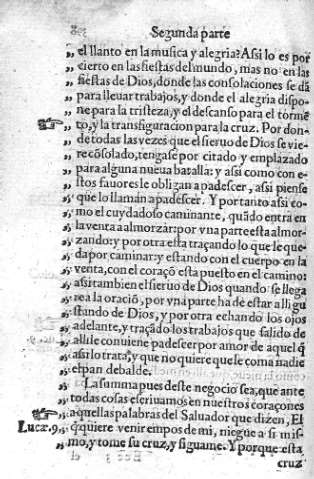 Segunda parte
el llanto en la musica y alegria? Assi lo es por
cierto en las fiestas del mundo, mas no en las
fiestas de Dios, donde las consolaciones se dã
para lleuar trabajos, y donde el alegria dispo-
ne para la tristeza, y el descanso para el tormẽ
to, y la transfiguracion para la cruz. Por don-
de todas las vezes que el sieruo de Dios se vie-
re cõsolado, tengase por citado y emplazado
para alguna nueua batalla: y assi como con e-
stos fauores le obligan a padescer, assi piense
que lo llamã a padescer. Y por tanto assi co-
mo el cuydadoso caminante, quãdo entra en
la venta a almorzar: por vna parte esta almor-
zando: y por otra esta traçando lo que le que-
da por caminar: y estando con el cuerpo en la
venta, con el coraçõ esta puesto en el camino:
assi tambien el sieruo de Dios quando se llega
a la oraciõ, por vna parte ha de estar alli gu
stando de Dios, y por otra echando los ojos
adelante, y traçãdo los trabajos que salido de
alli le conuiene padescer por amor de aquel q̃
assi lo trata, y que no quiere que le coma nadie
el pan debalde.
La summa pues deste negocio sea, que ante
todas cosas escriuamos en nuestros coraçones
aquellas palabras del Salvador que dizen, El
Luca. 9. q̃ quiere venir empos de mi, niegue a si mis-
mo, y tome su cruz, y sigame. Y porque esta
cruz